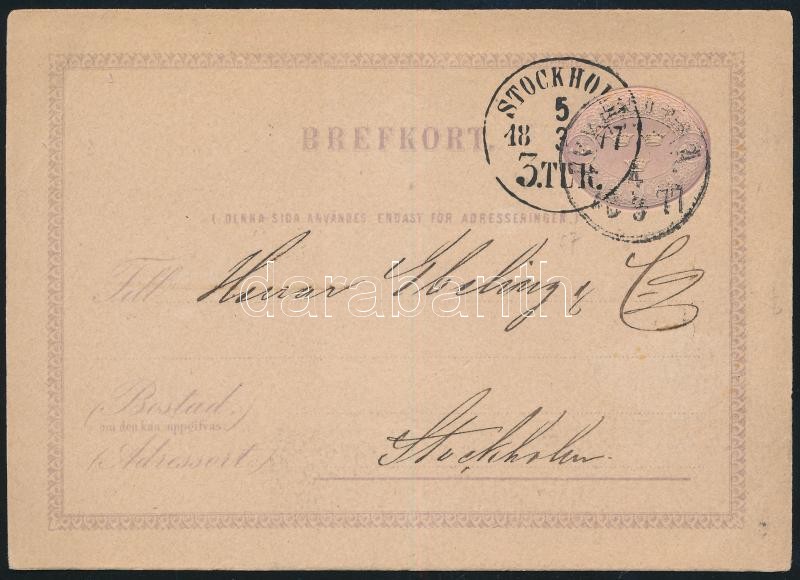 STOCKHOL
5
18 3 77
3.TUR.
4
3 77
BREFKORT.
( DENNA SIDA ANVÄNDES ENDAST FÖR ADRESSERINGEN.)
Till Herrar Ebeling & Co
darabanth
(Bostad,)
om den kan uppgifvas
(Adressort) Stockholm.